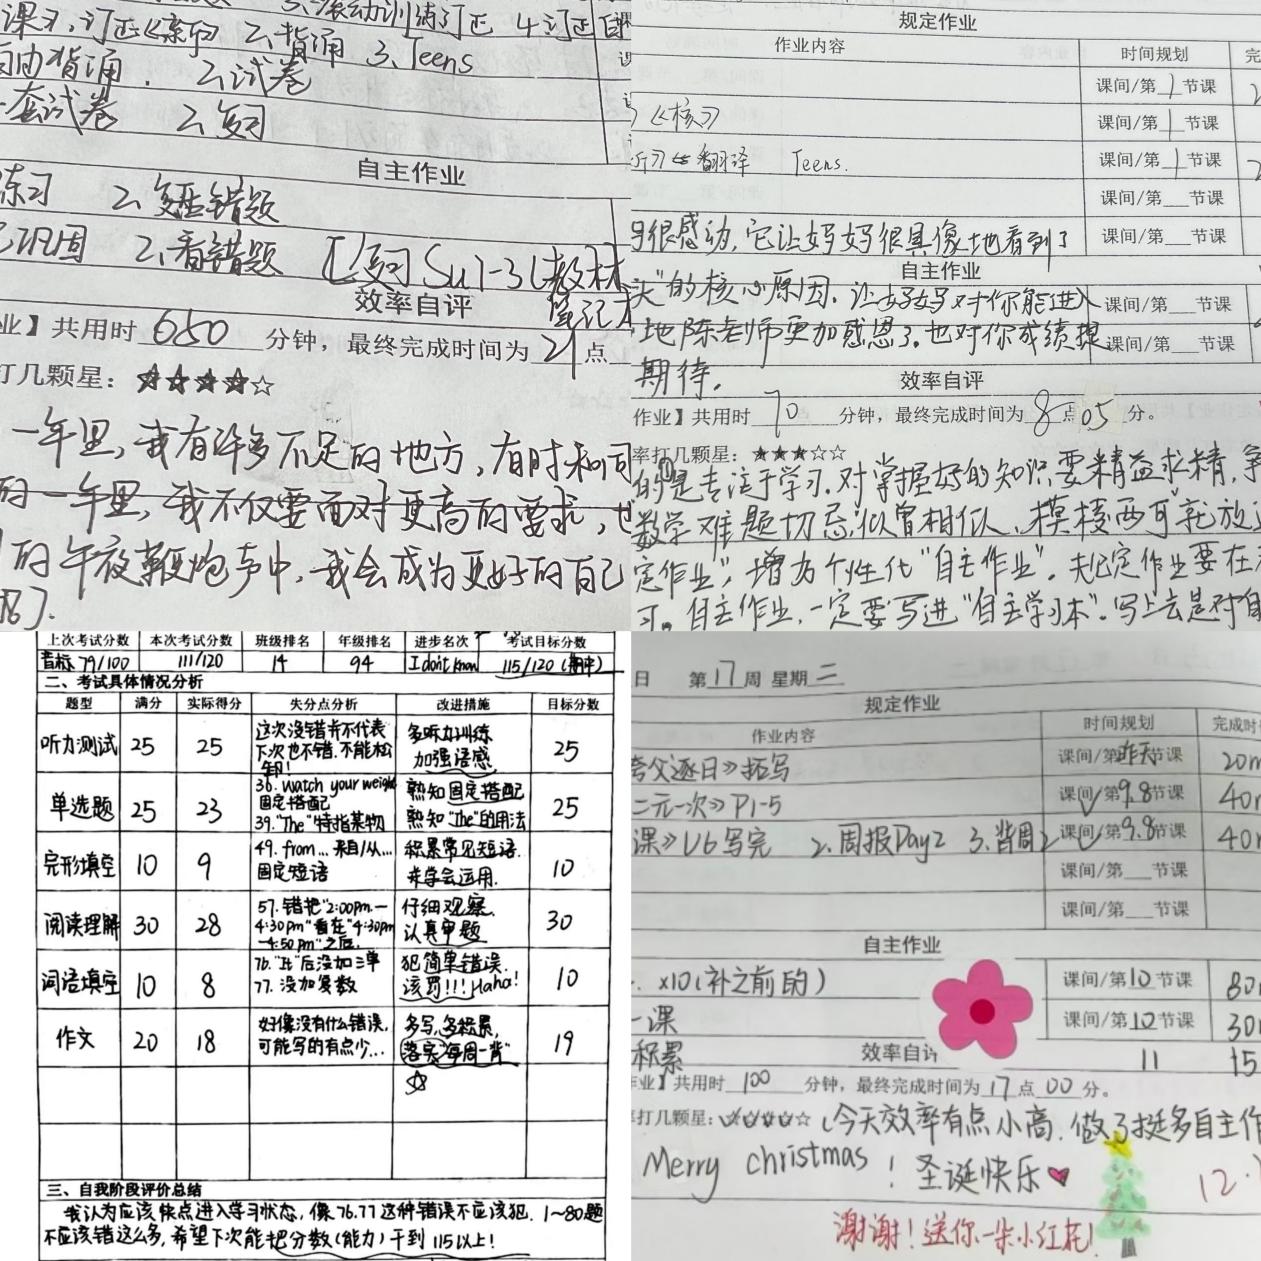 课》,订正《亲句》 2.背诵 3.Teens
自由背诵. 2.试卷
一套试卷 2.复习
自主作业
练习 2.复盘错题
巩固 2.看错题 【复习 Su1-3(教材
笔记本
效率自评
业】共用时650分钟,最终完成时间为21点
打几颗星:★★★★☆
一年里,我有许多不足的地方,有时和同
的一年里,我不仅要面对更高的要求,也
的午夜鞭炮声中,我会成为更好的自己
规定作业
作业内容 时间规划 完
课间/第1节课
《核》 课间/第1节课
翻译 Teens. 课间/第1节课
课间/第___节课
课间/第___节课
很感动,它让妈妈很具像地看到了
自主作业
头"的核心原因.让妈妈对你能进入 课间/第___节课
地陈老师更加感恩了.也对你成绩提 课间/第___节课
期待.
效率自评
作业】共用时70分钟,最终完成时间为8点05分。
率打几颗星:★★★☆☆
的①是专注于学习.对掌握好的知识要精益求精,争
数学难题切忌"似曾相似、模棱两可"就放过
定作业",增加个性化"自主作业".规定作业要在
习。自主作业,一定要写进"自主学习本".写上去是对自
上次考试分数 本次考试分数 班级排名 年级排名 进步名次 考试目标分数
79/100 111/120 14 94 I don't know 115/120(期中)
二、考试具体情况分析
题型 满分 实际得分 失分点分析 改进措施 目标分数
听力测试 25 25 这次没错并不代表下次也不错.不能松卸! 多听力训练 加强语感 25
单选题 25 23 36. watch your weight 固定搭配 39."The"特指某物 熟知固定搭配 熟知"The"的用法 25
完形填空 10 9 49. from... 来自/从... 固定短语 积累常见短语.并学会运用. 10
阅读理解 30 28 57.错把"2:00pm.—4:30pm"看在"4:30pm—4:50pm"之后. 仔细观察.认真审题 30
词语填空 10 8 76."It"后没加三单 77.没加复数 犯简单错误.该罚!!!Haha! 10
作文 20 18 好像没有什么错误,可能写的有点少... 多写,多积累,落实"每周一背" 19
三、自我阶段评价总结
我认为应该快点进入学习状态,像76.77这种错误不应该犯.1~80题
不应该错这么多,希望下次能把分数(能力)干到115以上!
日 第17周 星期二
规定作业
作业内容 时间规划 完成时
夸父逐日》拓写 课间/第昨天节课 20m
二元一次》P1-5 课间/第9.8节课 40m
课》U6写完 2.周报Day2 3.背周2 课间/第9.8节课 40m
课间/第___节课
课间/第___节课
自主作业
x10(补之前的) 课间/第10节课 80
一课 课间/第10节课 30
积累 效率自评 11 15
业】共用时100分钟,最终完成时间为17点00分。
打几颗星:★★★★☆(今天效率有点小高.做了挺多自主作
Merry christmas!圣诞快乐
12.
谢谢!送你一朵小红花!